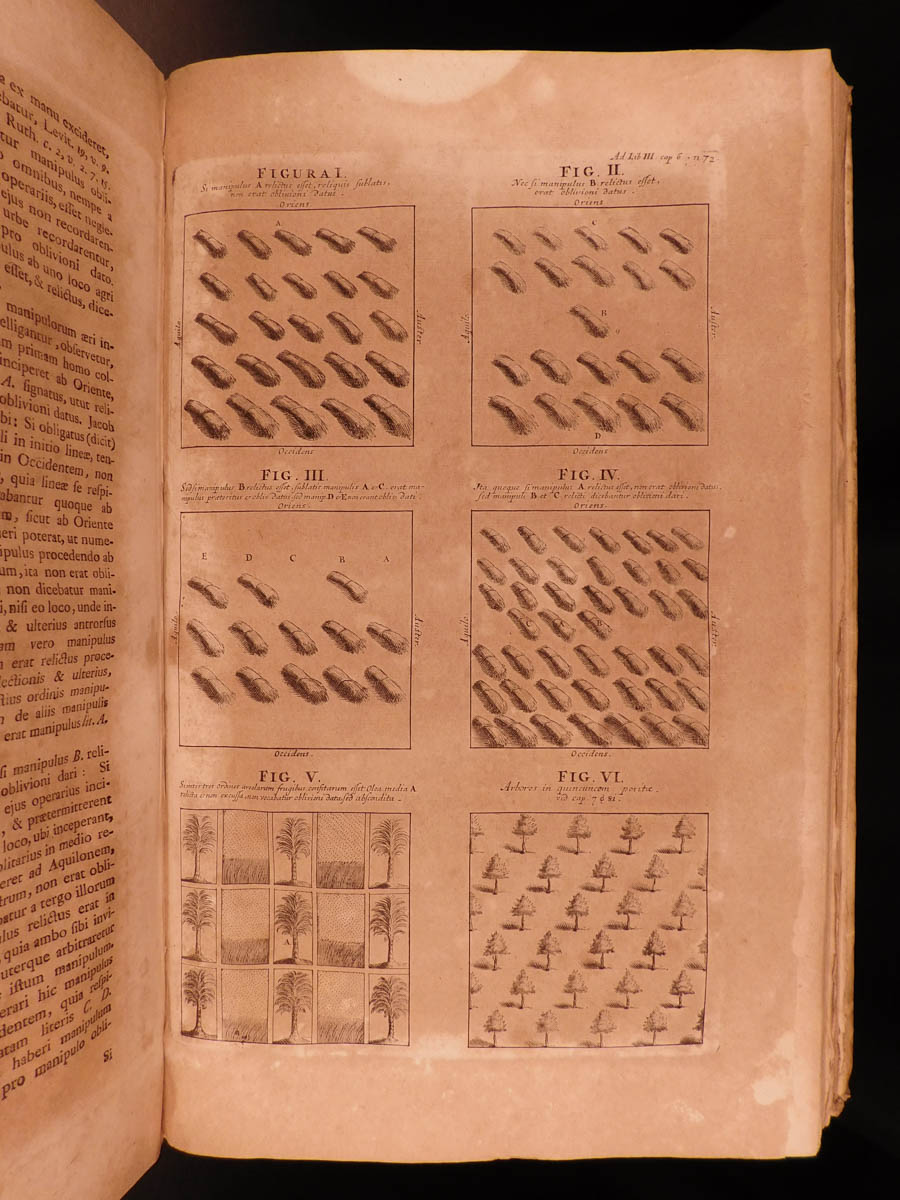 e ex manu excideret,
ebatur, Levit. 19, v. 9.
Ruth. c. 2, v. 2. 7. 15.
tur manipulus obli-
o omnibus, nempe a
operariis, esset negle-
ejus non recordaren-
urbe recordarentur,
pro oblivioni dato.
pulus ab uno loco agri
esset, & relictus, dice-
manipulorum æri in-
elligantur, observetur,
am primam homo col-
inciperet ab Oriente,
A. signatus, utut reli-
oblivioni datus. Jacob
bi: Si obligatus (dicit)
li in initio lineæ, ten-
in Occidentem, non
, quia lineæ se respi-
abantur quoque ab
m, sicut ab Oriente
neri poterat, ut nume-
ipulus procedendo ab
um, ita non erat obli-
non dicebatur mani-
i, nisi eo loco, unde in-
& ulterius antrorsus
am vero manipulus
n erat relictus proce-
lectionis & ulterius,
stius ordinis manipu-
n de aliis manipulis
erat manipulus lit. A.
si manipulus B. reli-
oblivioni dari: Si
ejus operarius inci-
, & prætermitterent
loco, ubi inceperant,
olitarius in medio re-
eret ad Aquilonem,
trum, non erat obli-
batur a tergo illorum
lus relictus erat in
, quia ambo sibi invi-
uterque arbitraretur
istum manipulum.
erari hic manipulus
dentem, quia respi-
atam literis C. D.
haberi manipulum
pro manipulo obli-
Si
Ad Lib III. cap 6. n 72
FIGURA I.
Si manipulus A relictus esset, reliquis sublatis,
non erat oblivioni datus.
Oriens
A
Aquilo
Auster
Occidens
FIG. II.
Nec si manipulus B. relictus esset,
erat oblivioni datus.
Oriens
C
B
Aquilo
Auster
D
Occidens
FIG. III
Sed si manipulus B relictus esset, sublatis manipulis A & C. erat ma-
nipulus præteritus & obliv. datus: sed manip. D & E non erant obliv. dati.
Oriens.
E D C B A
Aquilo
Auster
Occidens.
FIG. IV.
Ita quoque si manipulus A relictus esset, non erat oblivioni datus,
sed manipuli B et C relicti dicebantur oblivioni dari.
Oriens
C A B
Aquilo
Auster
Occidens.
FIG. V.
Olea media A
relicta & non excussa, non vocabatur oblivioni data, sed abscondita.
A
FIG. VI.
Arbores in quincuncem positæ
vid cap. 7 & 81.